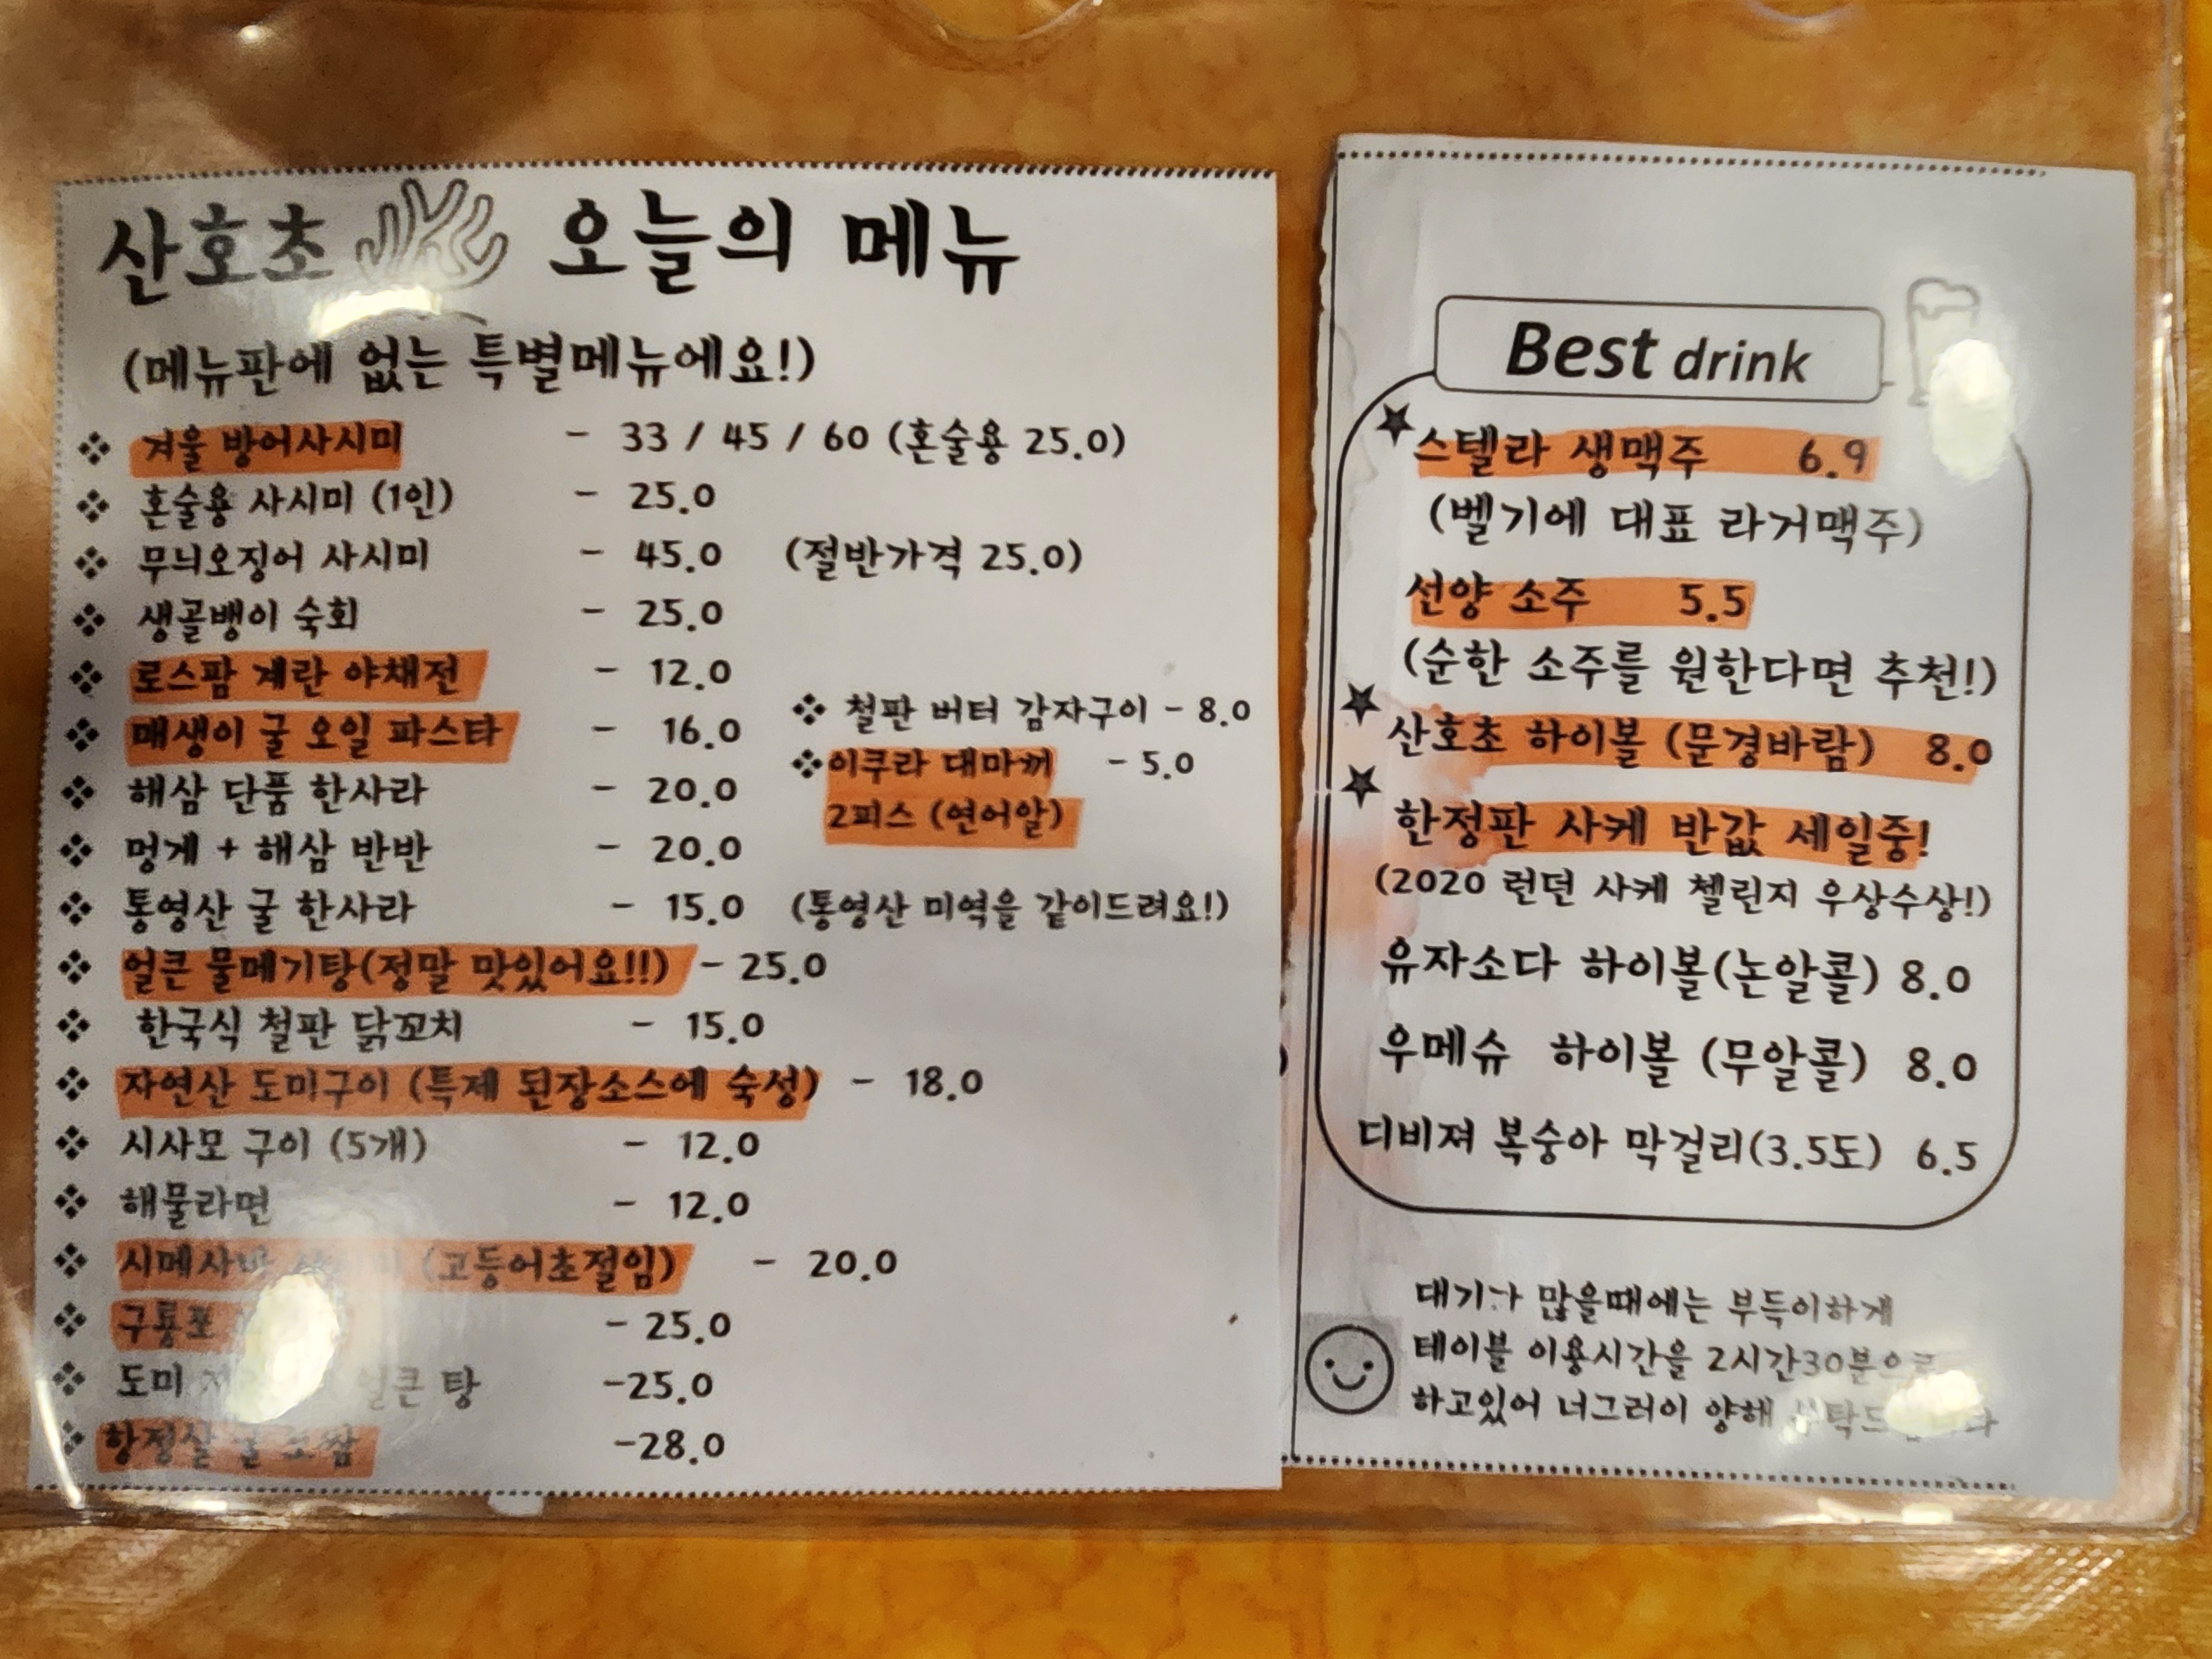 산호초 오늘의 메뉴
(메뉴판에 없는 특별메뉴에요!)
겨울 방어사시미 - 33 / 45 / 60 (혼술용 25.0)
혼술용 사시미 (1인) - 25.0
무늬오징어 사시미 - 45.0 (절반가격 25.0)
생골뱅이 숙회 - 25.0
로스팜 계란 야채전 - 12.0
매생이 굴 오일 파스타 - 16.0
해삼 단품 한사라 - 20.0
멍게 + 해삼 반반 - 20.0
통영산 굴 한사라 - 15.0 (통영산 미역을 같이드려요!)
얼큰 물메기탕(정말 맛있어요!!) - 25.0
한국식 철판 닭꼬치 - 15.0
자연산 도미구이 (특제 된장소스에 숙성) - 18.0
시사모 구이 (5개) - 12.0
해물라면 - 12.0
시메사바 (고등어초절임) - 20.0
구룡포 - 25.0
도미 탕 -25.0
항정살 -28.0
철판 버터 감자구이 - 8.0
이쿠라 대마끼 - 5.0
2피스 (연어알)
Best drink
스텔라 생맥주 6.9
(벨기에 대표 라거맥주)
선양 소주 5.5
(순한 소주를 원한다면 추천!)
산호초 하이볼 (문경바람) 8.0
한정판 사케 반값 세일중!
(2020 런던 사케 첼린지 우상수상!)
유자소다 하이볼(논알콜) 8.0
우메슈 하이볼 (무알콜) 8.0
디비져 복숭아 막걸리(3.5도) 6.5
대기가 많을때에는 부득이하게
테이블 이용시간을 2시간30분으로
하고있어 너그러이 양해